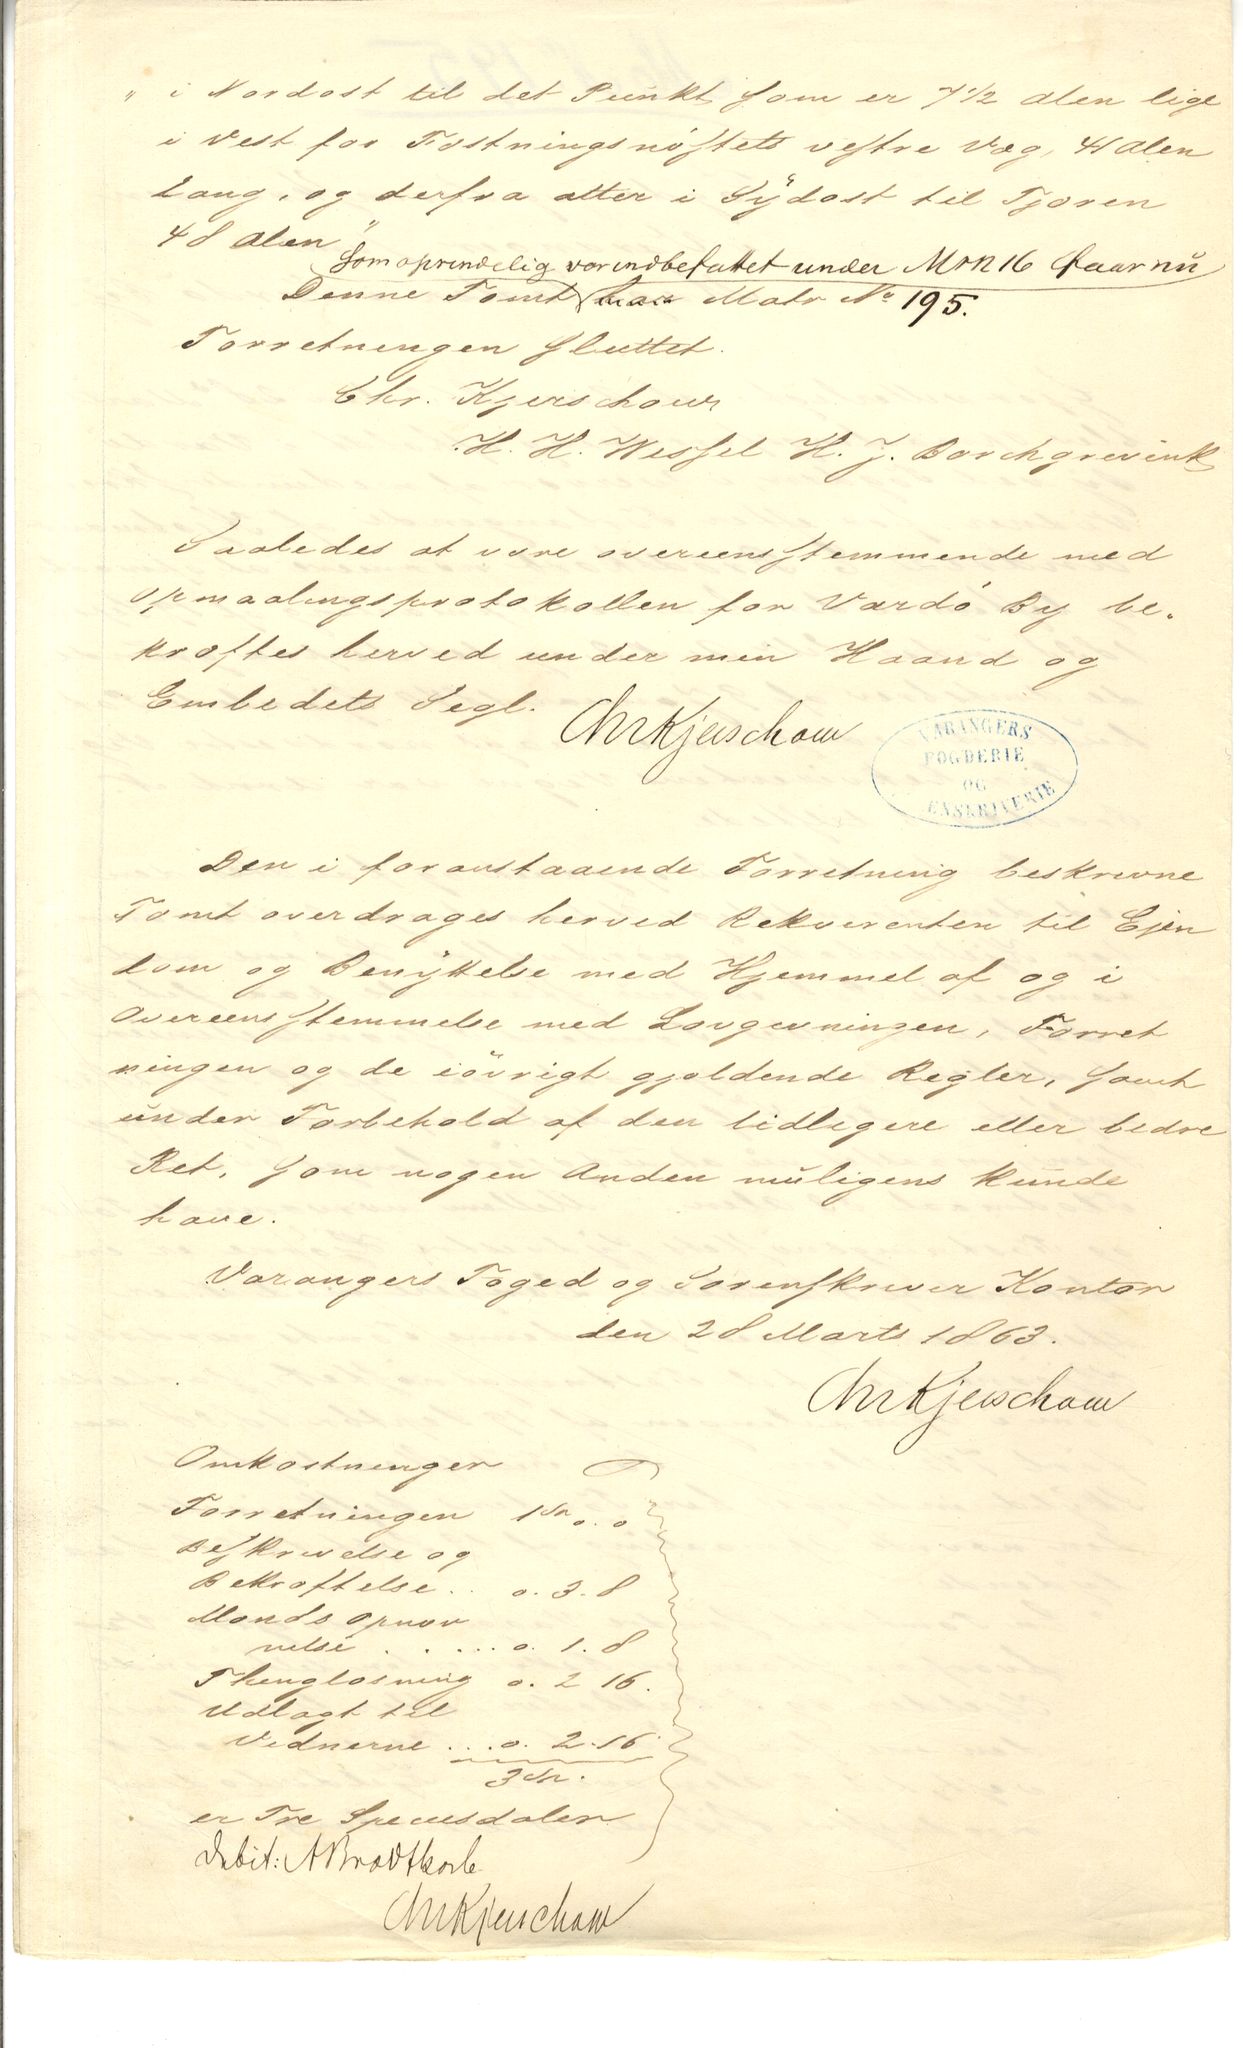 " i Nordost til det Punkt som er 7 1/2 Alen lige
i Vest for Fæstningsnøstets vestre Væg, 41 Alen
lang, og derfra atter i Sydost til Fjæren
48 Alen"
som oprindelig var indbefattet under M N 16 faar nu
Denne Tomt har Matr No 195.
Forretningen sluttet.
Chr. Kjerschow
H. H. Wessel H. J. Borchgrevink
Saaledes at være overeensstemmende med
Opmaalingsprotokollen for Vardö By be-
kræftes herved under min Haand og
Embedets Segl.
Chr Kjerschow
VARANGERS
FOGDERIE
OG
ENSKRIVERIE
Den i foranstaaende Forretning beskrevne
Tomt overdrages herved Rekvirenten til Ejen
dom og Benyttelse med Hjemmel af og i
Overeensstemmelse med Lovgivningen, Forret
ningen og de iövrigt gjældende Regler, samt
under Forbehold af den tidligere eller bedre
Ret, som nogen Anden muligens kunde
have.
Varangers Foged og Sorenskriver Kontor
den 28 Marts 1863.
Chr Kjerschow
Omkostninger
Forretningen 1 Sp o. o
Beskrivelse og
Bekræftelse .. o. 3. 8
Mands Opnæv
nelse . . . . . . o. 1. 8
Thinglæsning o. 2 16.
Udlagt til
Vidnerne . . . o. 2. 16
3 Sp.
er Tre Speciesdaler
Debit: A Brodtkorb
Chr Kjerschow